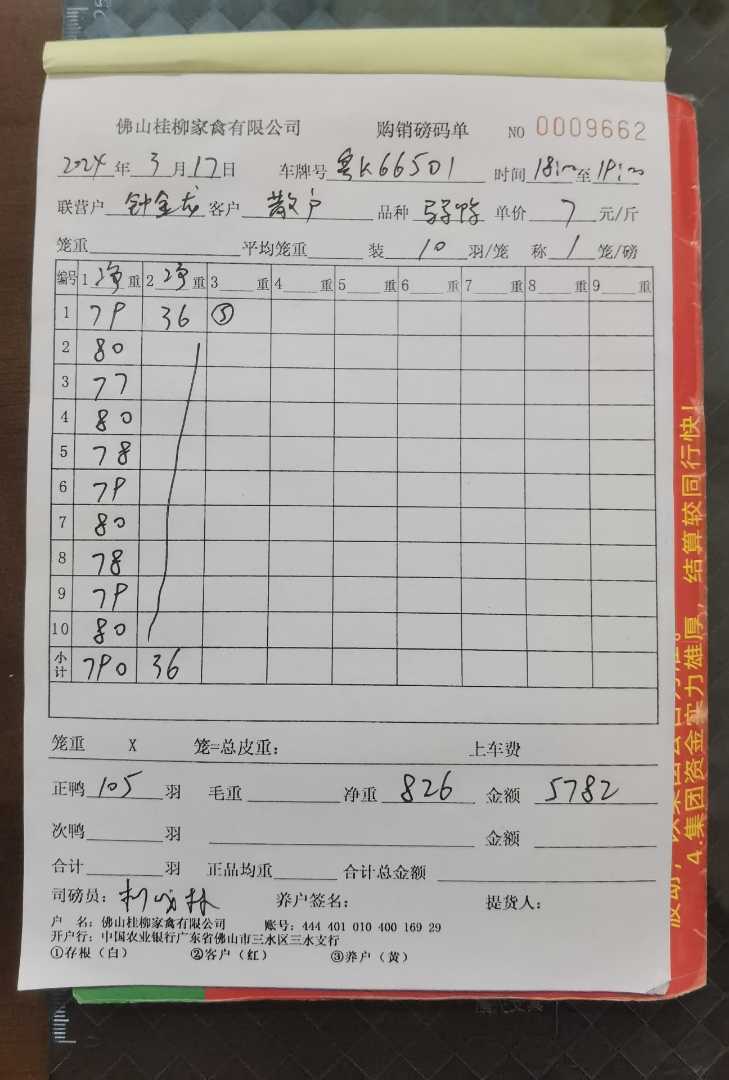 佛山桂柳家禽有限公司 购销磅码单 NO 0009662
2024年3月17日 车牌号 粤K66501 时间 18:00至19:00
联营户 钟金龙 客户 散户 品种 单价 7 元/斤
笼重 平均笼重 装 10 羽/笼 称 1 笼/磅
编号 1 净重 2 净重 3 重 4 重 5 重 6 重 7 重 8 重 9 重
1 79 36 ⑤
2 80
3 77
4 80
5 78
6 79
7 80
8 78
9 79
10 80
小计 790 36
笼重 X 笼=总皮重: 上车费
正鸭 105 羽 毛重 净重 826 金额 5782
次鸭 羽 金额
合计 羽 正品均重 合计总金额
司磅员: 养户签名: 提货人:
户 名: 佛山桂柳家禽有限公司 账号: 444 401 010 400 169 29
开户行: 中国农业银行广东省佛山市三水区三水支行
①存根(白) ②客户(红) ③养户(黄)
4.集团资金实力雄厚, 结算较同行快!